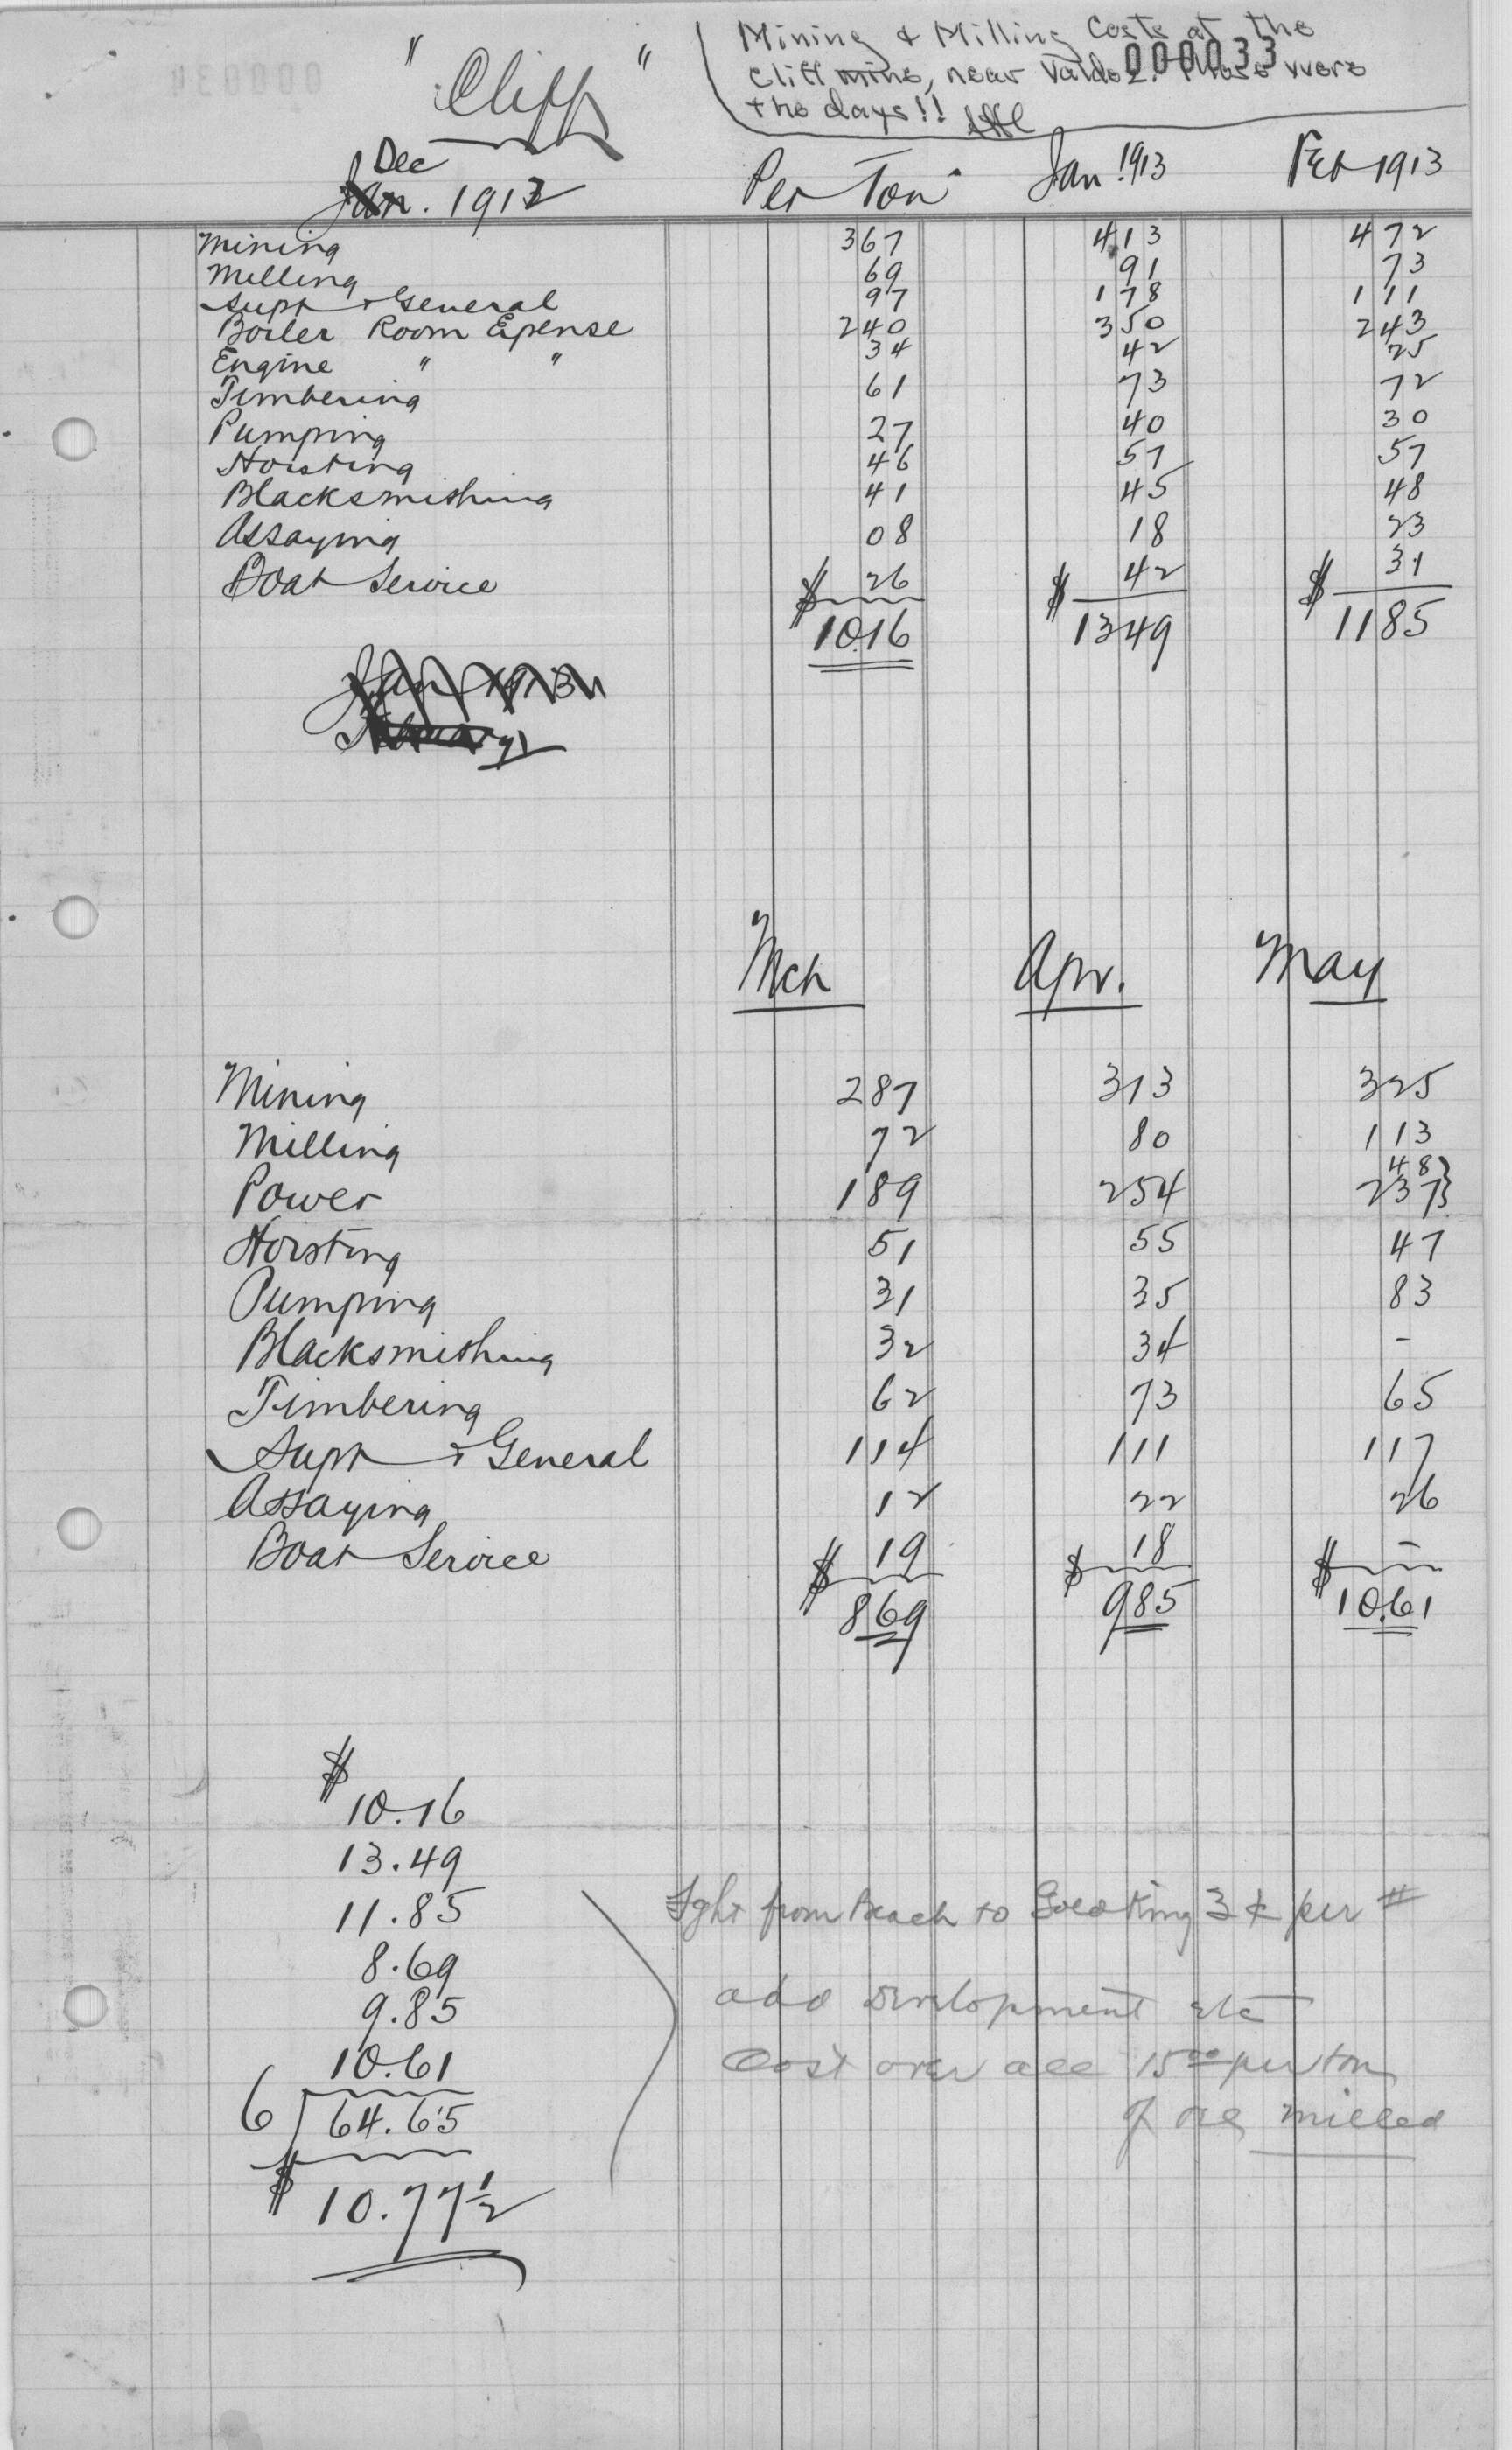 "Cliff"
Mining & Milling Costs at the
Cliff mine, near Valdez. Those were
the days!!
000033
Dec
Jan. 1912 Per Ton Jan. 1913 Feb 1913
Mining 367 413 472
Milling 69 91 73
Supt & General 97 178 111
Boiler Room Epense 240 350 243
Engine " " 34 42 25
Timbering 61 73 72
Pumping 27 40 30
Hoisting 46 57 57
Blacksmithing 41 45 48
Assaying 08 18 23
Boat Service 26 42 31
$ 10.16 $ 1349 $ 1185
Jan 1913
February
Mch Apr. May
Mining 287 313 325
Milling 72 80 113
48}
Power 189 254 237}
Hoisting 51 55 47
Pumping 31 35 83
Blacksmithing 32 34 -
Timbering 62 73 65
Supt & General 114 111 117
Assaying 12 22 26
Boat Service 19 18 -
$ 869 $ 985 $ 10.61
$
10.16
13.49
11.85
8.69
9.85
10.61
6 64.65
$ 10.77 1/2
Fght from Beach to Gold King 3 ¢ per #
add Development etc
Cost over all 15 00 per ton
of ore milled